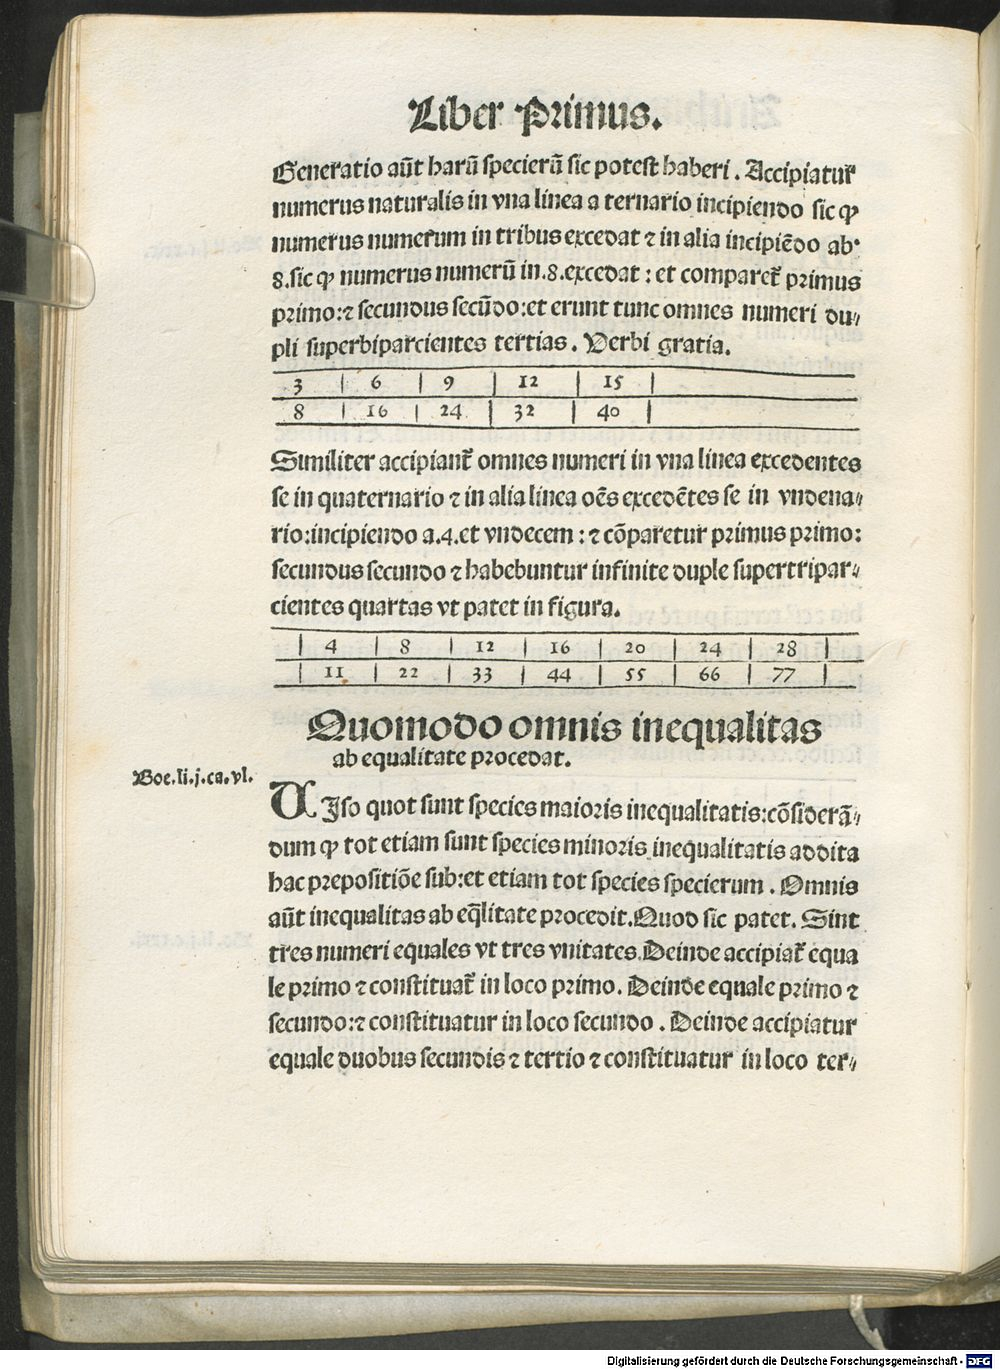 Liber Primus.
Generatio aūt harū specierū sic potest haberi. Accipiatur
numerus naturalis in vna linea a ternario incipiendo sic ꝙ
numerus numerum in tribus excedat ⁊ in alia incipiēdo ab
8.sic ꝙ numerus numerū in.8.excedat: et comparet̄ primus
primo:⁊ secundus secūdo:et erunt tunc omnes numeri du⸗
pli superbiparcientes tertias. Verbi gratia.
3 | 6 | 9 | 12 | 15 |
8 | 16 | 24 | 32 | 40 |
Similiter accipiant̄ omnes numeri in vna linea excedentes
se in quaternario ⁊ in alia linea oēs excedētes se in vndena⸗
rio:incipiendo a.4.et vndecem: ⁊ cōparetur primus primo:
secundus secundo ⁊ habebuntur infinite duple supertripar⸗
cientes quartas vt patet in figura.
| 4 | 8 | 12 | 16 | 20 | 24 | 28 |
| 11 | 22 | 33 | 44 | 55 | 66 | 77 |
Quomodo omnis inequalitas
ab equalitate procedat.
Boe.li.j.ca.vl.
VIso quot sunt species maioris inequalitatis:cōsiderā⸗
dum ꝙ tot etiam sunt species minoris inequalitatis addita
hac prepositiōe sub:et etiam tot species specierum. Omnis
aūt inequalitas ab eq̄litate procedit.Quod sic patet. Sint
tres numeri equales vt tres vnitates.Deinde accipiat̄ equa
le primo ⁊ constituat̄ in loco primo. Deinde equale primo ⁊
secundo:⁊ constituatur in loco secundo. Deinde accipiatur
equale duobus secundis ⁊ tertio ⁊ constituatur in loco ter⸗
Digitalisierung gefördert durch die Deutsche Forschungsgemeinschaft - DFG